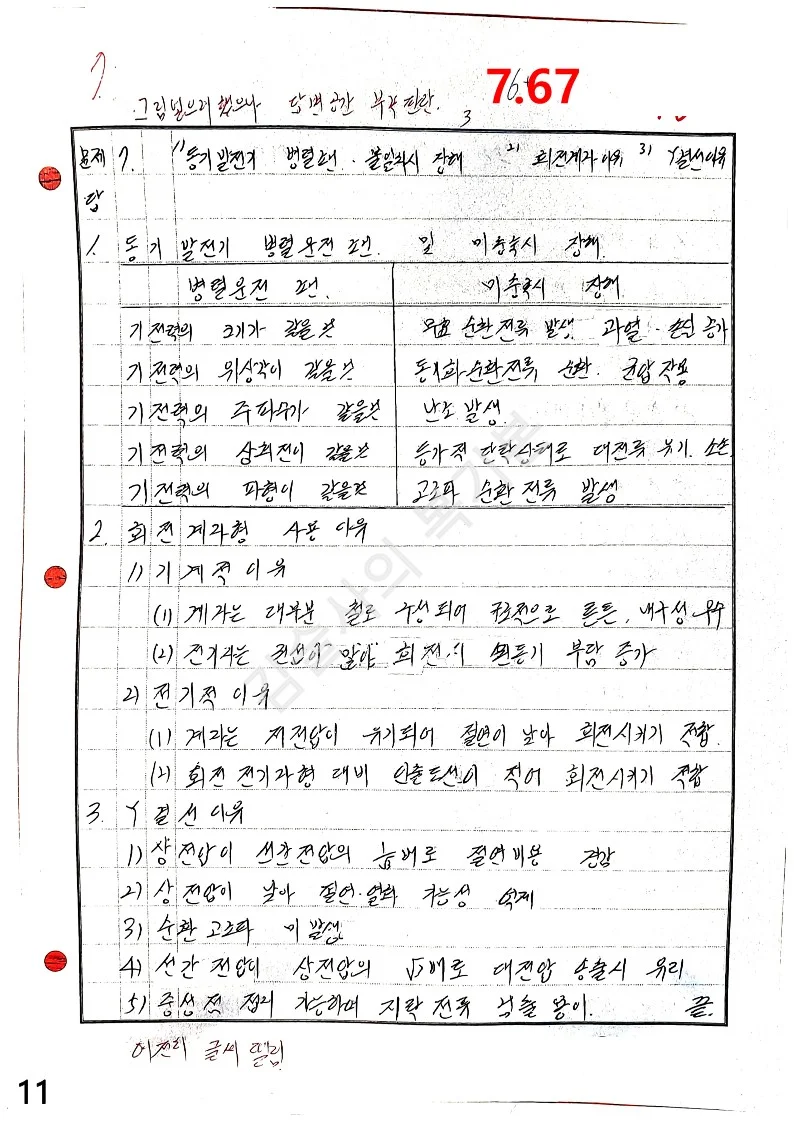 7.
7.67
그림넣으려 했으나 답변공간 부족 판단.
3
문제 7. 1) 동기발전기 병렬조건·불일치시 장해 2) 회전계자 이유 3) Y결선이유
답
1. 동기 발전기 병렬운전 조건. 및 미충족시 장해.
병렬운전 조건. 미충족시 장해
기전력의 크기가 같을 것 무효 순환전류 발생. 과열·손실 증가
기전력의 위상각이 같을 것 동기화 순환전류 순환. 균압작용
기전력의 주파수가 같을 것 난조 발생
기전력의 상회전이 같을 것 등가적 단락상태로 대전류 유기. 소손.
기전력의 파형이 같을 것 고조파 순환전류 발생
2. 회전계자형 사용 이유
1) 기계적 이유
(1) 계자는 대부분 철로 구성되어 구조적으로 튼튼, 내구성 우수
(2) 전기자는 권선이 많아 회전시 원동기 부담 증가
2) 전기적 이유
(1) 계자는 저전압이 유기되어 절연이 낮아 회전시키기 적합.
(2) 회전 전기자형 대비 인출도선이 적어 회전시키기 적합
3. Y 결선 이유
1) 상전압이 선간전압의 1/√3배로 절연비용 경감
2) 상전압이 낮아 절연·열화 가능성 억제
3) 순환 고조파 미발생
4) 선간 전압이 상전압의 √3배로 대전압 송출시 유리
5) 중성점 접지 가능하며 지락 전류 검출 용이. 끝.
여전히 글씨 떨림
김순사의 복기본
11